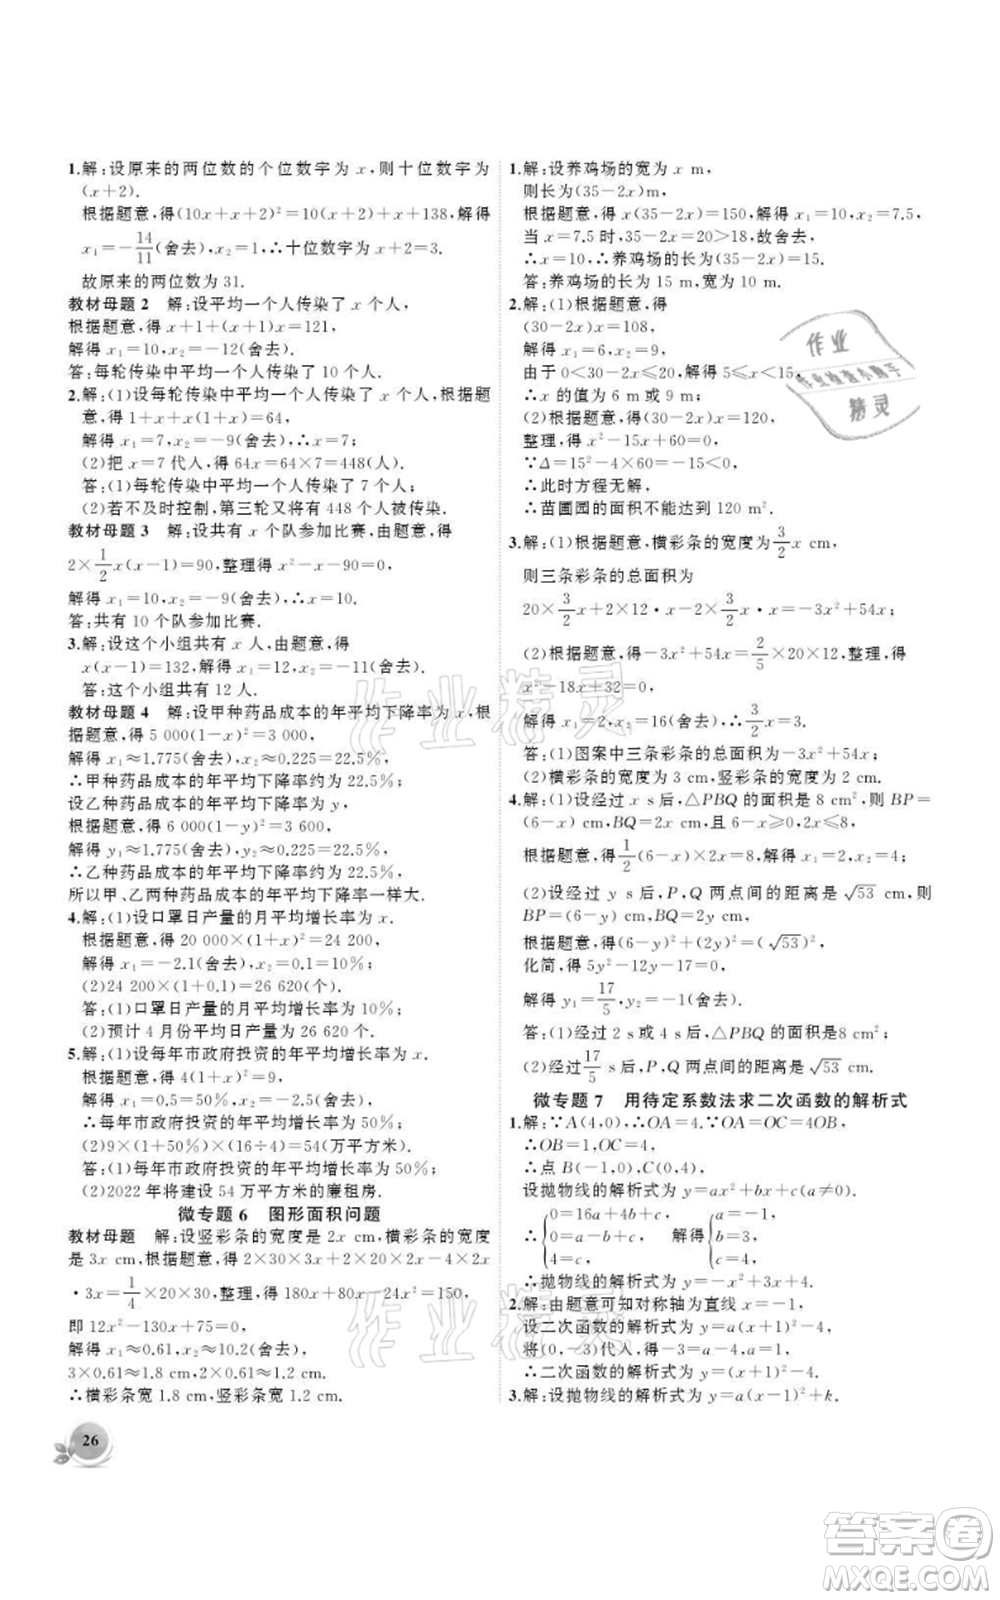 1.解:设原来的两位数的个位数字为 x,则十位数字为
(x+2).
根据题意,得(10x+x+2)²=10(x+2)+x+138,解得
x₁=-14/11(舍去),x₂=1,∴十位数字为 x+2=3.
故原来的两位数为 31.
教材母题 2 解:设平均一个人传染了 x 个人,
根据题意,得 x+1+(x+1)x=121,
解得 x₁=10,x₂=-12(舍去).
答:每轮传染中平均一个人传染了 10 个人.
2.解:(1)设每轮传染中平均一个人传染了 x 个人,根据
题意,得 1+x+x(1+x)=64,
解得 x₁=7,x₂=-9(舍去),∴x=7;
(2)把 x=7 代入,得 64x=64×7=448(人).
答:(1)每轮传染中平均一个人传染了 7 个人;
(2)若不及时控制,第三轮又将有 448 人被传染.
教材母题 3 解:设共有 x 个队参加比赛,由题意,得
2×1/2x(x-1)=90,整理得 x²-x-90=0,
解得 x₁=10,x₂=-9(舍去),∴x=10.
答:共有 10 个队参加比赛.
3.解:设这个小组共有 x 人,由题意,得
x(x-1)=132,解得 x₁=12,x₂=-11(舍去).
答:这个小组共有 12 人.
教材母题 4 解:设甲种药品成本的年平均下降率为 x,根
据题意,得 5 000(1-x)²=3 000,
解得 x₁≈1.775(舍去),x₂≈0.225=22.5%,
∴甲种药品成本的年平均下降率约为 22.5%;
设乙种药品成本的年平均下降率为 y,
根据题意,得 6 000(1-y)²=3 600,
解得 y₁≈1.775(舍去),y₂≈0.225=22.5%,
∴乙种药品成本的年平均下降率约为 22.5%.
所以甲、乙两种药品成本的年平均下降率一样大.
4.解:(1)设口罩日产量的月平均增长率为 x.
根据题意,得 20 000×(1+x)²=24 200,
解得 x₁=-2.1(舍去),x₂=0.1=10%;
(2)24 200×(1+0.1)=26 620(个).
答:(1)口罩日产量的月平均增长率为 10%;
(2)预计 4 月份平均日产量为 26 620 个.
5.解:(1)设每年市政府投资的年平均增长率为 x.
根据题意,得 4(1+x)²=9,
解得 x₁=0.5=50%,x₂=-2.5(舍去),
∴每年市政府投资的年平均增长率为 50%;
(2)9×(1+50%)×(16÷4)=54(万平方米).
答:(1)每年市政府投资的年平均增长率为 50%;
(2)2022 年将建设 54 万平方米的廉租房.
微专题 6 图形面积问题
教材母题 解:设竖彩条的宽度是 2x cm,横彩条的宽度
是 3x cm,根据题意,得 2×30×3x+2×20×2x-4×2x
·3x=1/4×20×30,整理,得 180x+80x-24x²=150,
即 12x²-130x+75=0,
解得 x₁≈0.61,x₂≈10.2(舍去).
3×0.61≈1.8 cm,2×0.61≈1.2 cm.
∴横彩条宽 1.8 cm,竖彩条宽 1.2 cm.
26
1.解:设养鸡场的宽为 x m,
则长为(35-2x)m,
根据题意,得 x(35-2x)=150,解得 x₁=10,x₂=7.5,
当 x=7.5 时,35-2x=20>18,故舍去,
∴x=10,∴养鸡场的长为 35-2x=15.
答:养鸡场的长为 15 m,宽为 10 m.
2.解:(1)根据题意,得
(30-2x)x=108,
解得 x₁=6,x₂=9,
由于 0<30-2x≤20,解得 5≤x<15,
∴x 的值为 6 m或 9 m;
(2)根据题意,得(30-2x)x=120,
整理,得 x²-15x+60=0,
∵Δ=15²-4×60=-15<0,
∴此时方程无解,
∴苗圃园的面积不能达到 120 m².
3.解:(1)根据题意,横彩条的宽度为3/2x cm,
则三条彩条的总面积为
20×3/2x+2×12·x-2×3/2x·x=-3x²+54x;
(2)根据题意,得-3x²+54x=2/5×20×12,
x²-18x+32=0,
解得 x₁=2,x₂=16(舍去),∴3/2x=3.
答:(1)图案中三条彩条的总面积为-3x²+54x;
(2)横彩条的宽度为 3 cm,竖彩条的宽度为 2 cm.
4.解:(1)设经过 x s后,△PBQ 的面积为 8 cm²,则 BP=
(6-x) cm,BQ=2x cm,且 0≤x≤6,0≤2x≤8,
根据题意,得1/2(6-x)×2x=8,解得 x₁=2,x₂=4;
(2)设经过 y s后,P,Q 两点间的距离是 √53 cm,则
BP=(6-y)cm,BQ=2y cm,
根据题意,得(6-y)²+(2y)²=(√53)²,
化简,得 5y²-12y-17=0,
解得 y₁=17/5,y₂=-1(舍去).
答:(1)经过 2 s或 4 s后,△PBQ 的面积是8 cm²;
(2)经过17/5 s后,P,Q 两点间的距离为 √53 cm.
微专题 7 用待定系数法求二次函数的解析式
1.解:∵A(4,0),∴OA=4.∵OA=OC=4OB,
∴OB=1,OC=4,
∴点 B(-1,0),C(0,4).
设抛物线的解析式为 y=ax²+bx+c(a≠0),
∴{0=16a+4b+c, 0=a-b+c, 4=c, 解得{a=-1, b=3, c=4,
∴抛物线的解析式为 y=-x²+3x+4.
2.解:由题意可知对称轴为直线 x=-1,
设二次函数的解析式为 y=a(x+1)²-4,
将(0,-3)代入,得-3=a-4,∴a=1,
∴二次函数的解析式为 y=(x+1)²-4.
3.解:设抛物线的解析式为 y=a(x-1)²+k.
作业
作业检查小助手
精灵
作业精灵
作业精灵
答案圈
MXQE.COM